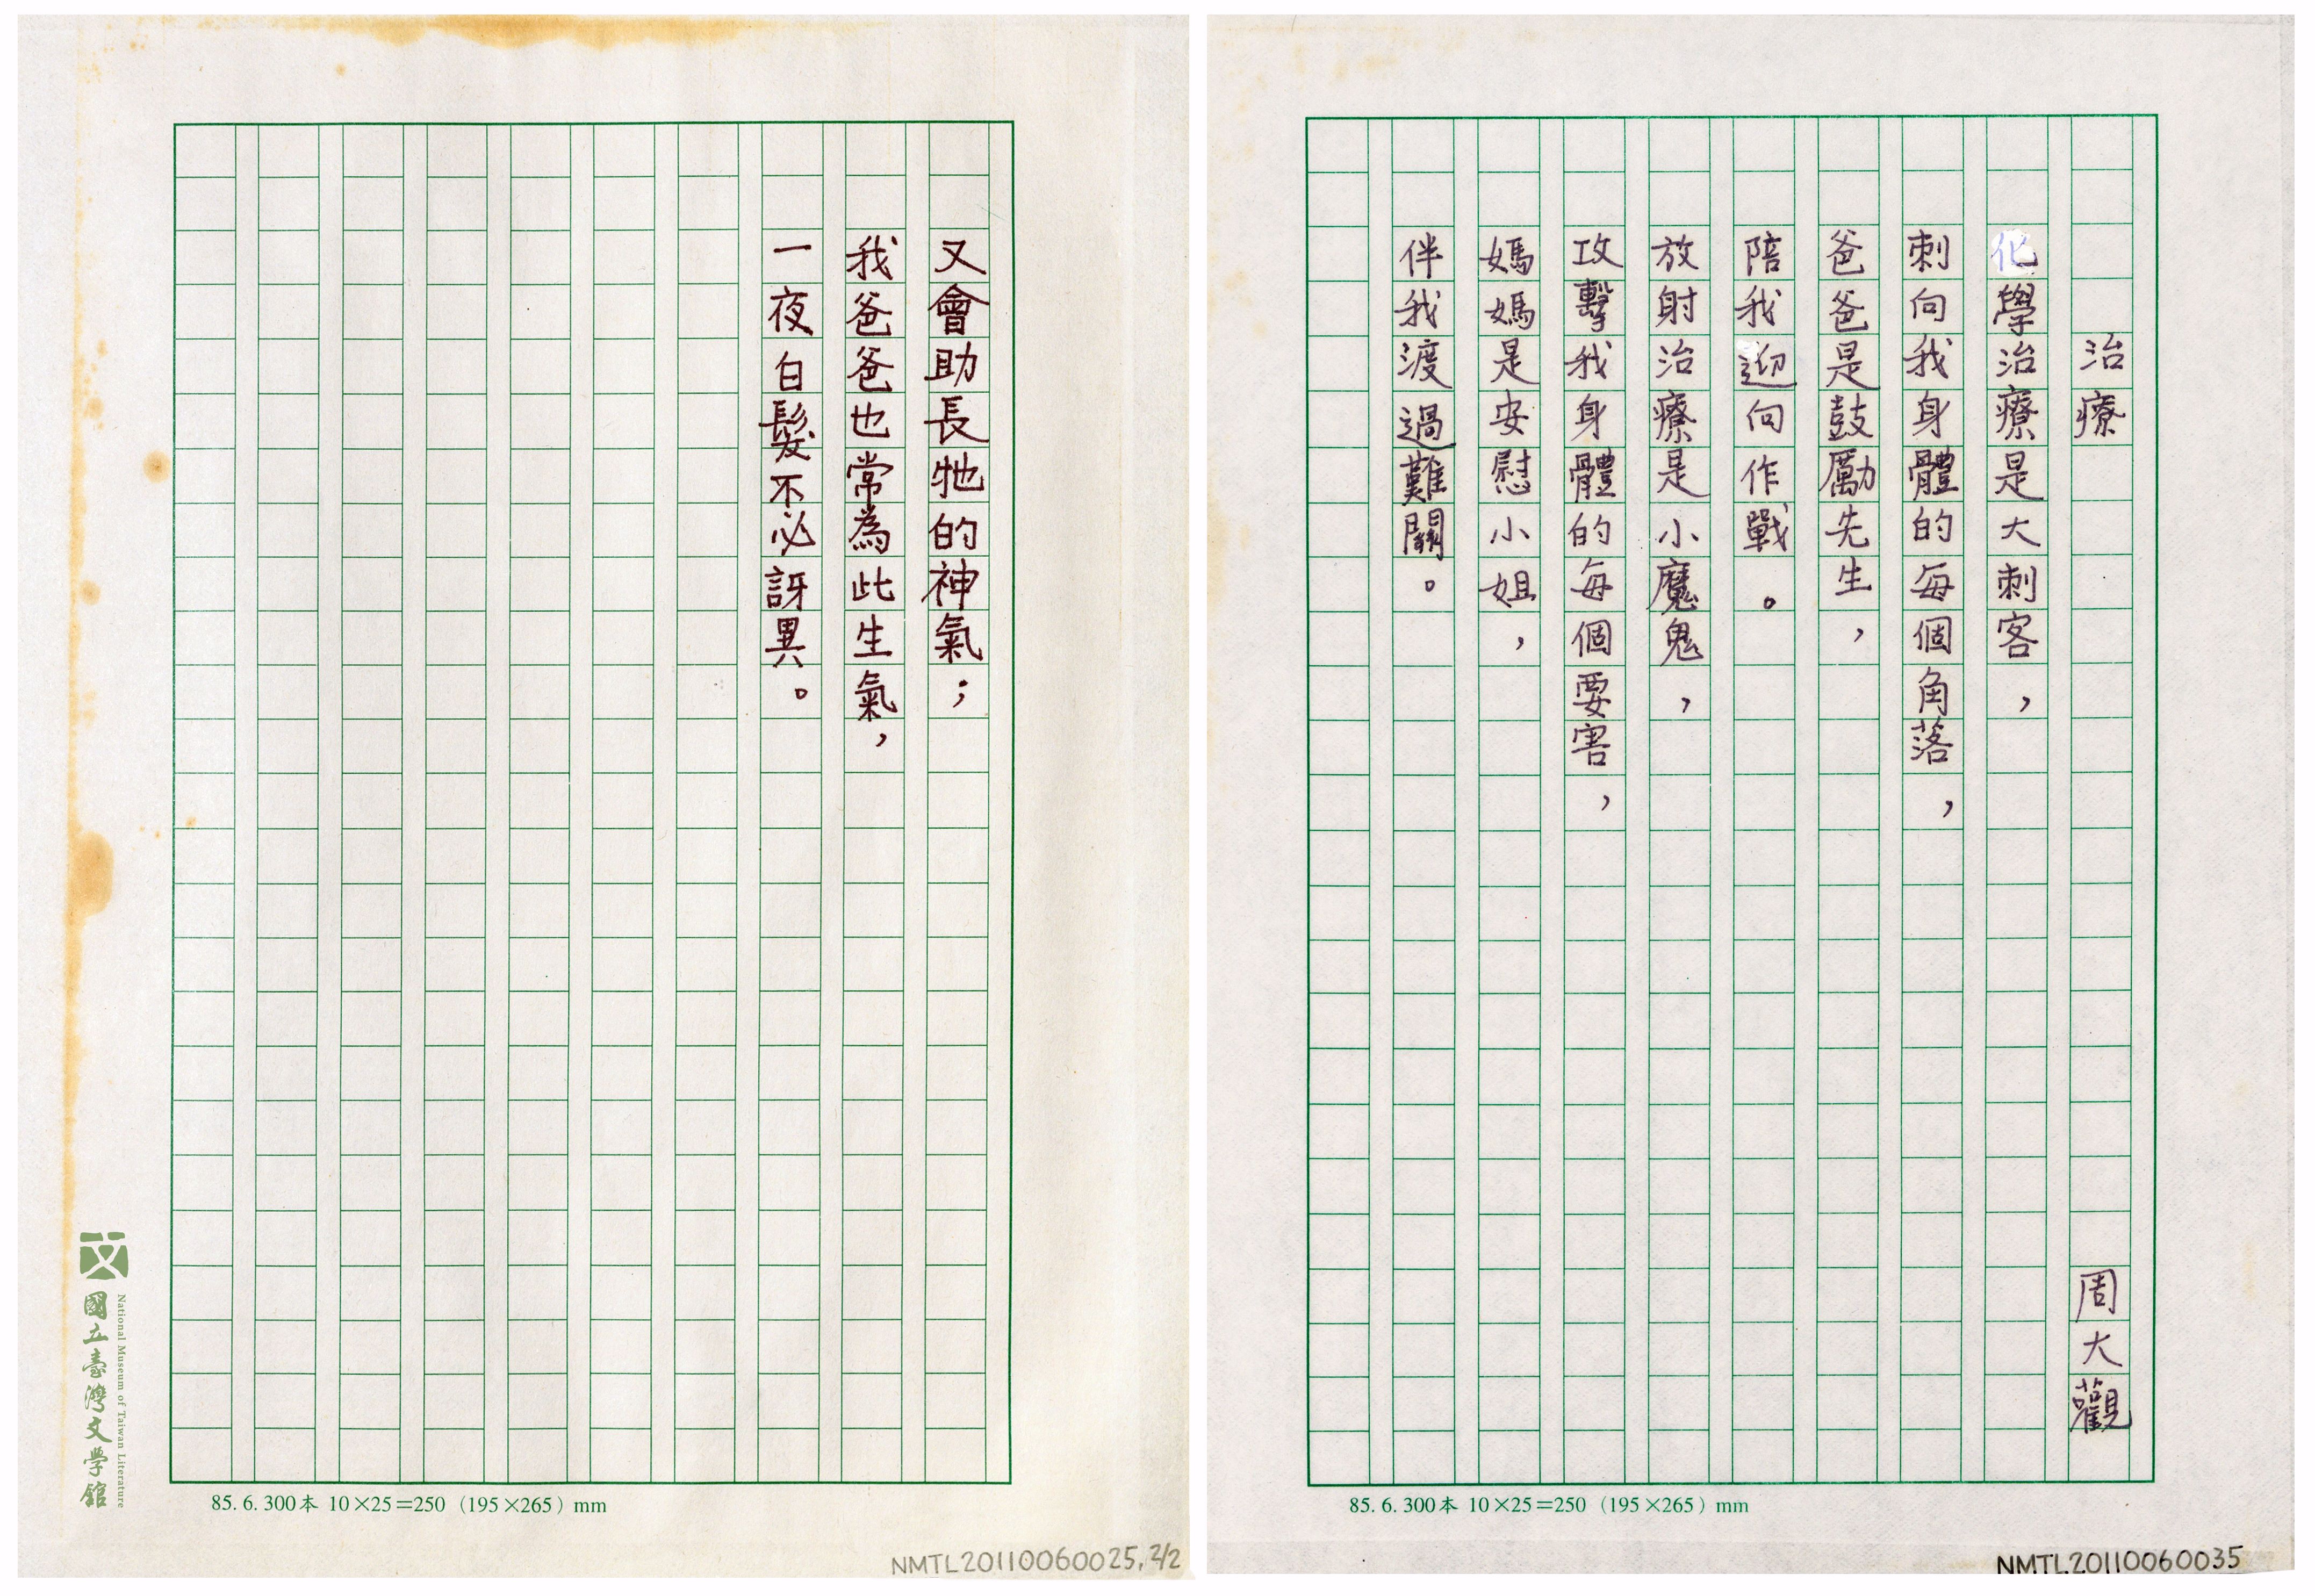 治療 周大觀
化學治療是大刺客，
刺向我身體的每個角落，
爸爸是鼓勵先生，
陪我迎向作戰。
放射治療是小魔鬼，
攻擊我身體的每個要害，
媽媽是安慰小姐，
伴我渡過難關。
85.6.300本 10×25＝250 (195×265) mm
NMTL20110060035
又會助長牠的神氣；
我爸爸也常為此生氣，
一夜白髮不必訝異。
85.6.300本 10×25＝250 (195×265) mm
NMTL20110060025,2/2
文
國立臺灣文學館
National Museum of Taiwan Literature